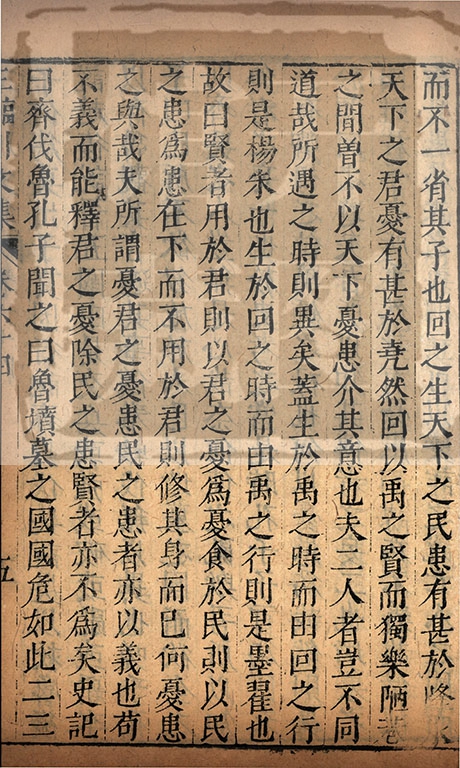 而不一省其子也回之生天下之民患有甚於洚水
天下之君憂有甚於堯然回以禹之賢而獨樂陋巷
之間曾不以天下憂患介其意也夫二人者豈不同
道哉所遇之時則異矣蓋生於禹之時而由回之行
則是楊朱也生於回之時而由禹之行則是墨翟也
故曰賢者用於君則以君之憂爲憂食於民則以民
之患爲患在下而不用於君則修其身而已何憂患
之與哉夫所謂憂君之憂患民之患者亦以義也苟
不義而能釋君之憂除民之患賢者亦不爲矣史記
曰齊伐魯孔子聞之曰魯墳墓之國國危如此二三
王臨川文集 卷六十四 五